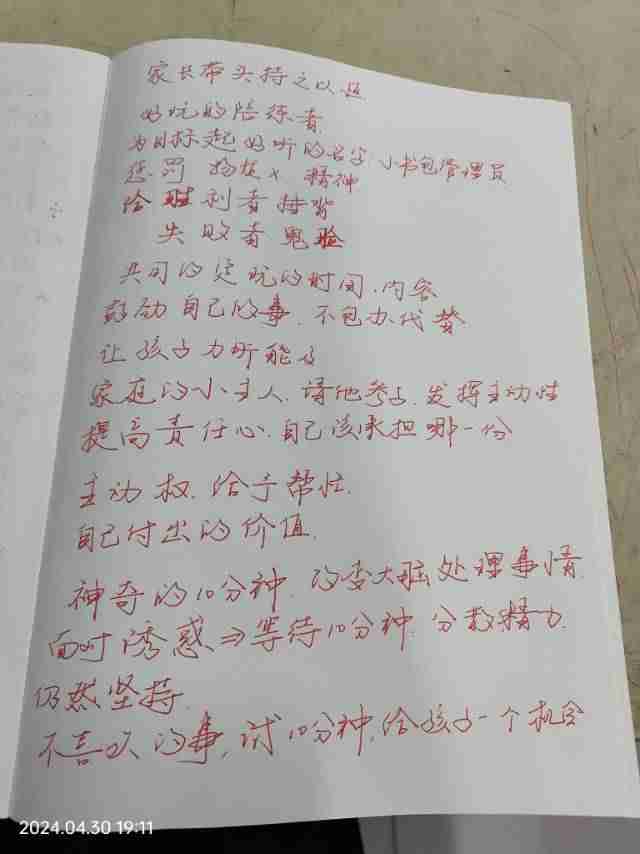 家长带头持之以恒
好玩的陪练者
为目标起好听的名字.小书包管理员
惩罚 物质x 精神
给胜利者捶背
失败者鬼脸
共同约定玩的时间.内容
鼓励自己做事.不包办代替
让孩子力所能及
家庭的小主人.请他参与.发挥主动性
提高责任心.自己该承担哪一份
主动权.给予帮忙.
自己付出的价值.
神奇的10分钟.改变大脑处理事情.
面对诱惑⇒等待10分钟.分散精力.
仍然坚持.
不喜欢的事,试10分钟.给孩子一个机会
2024.04.30 19:11